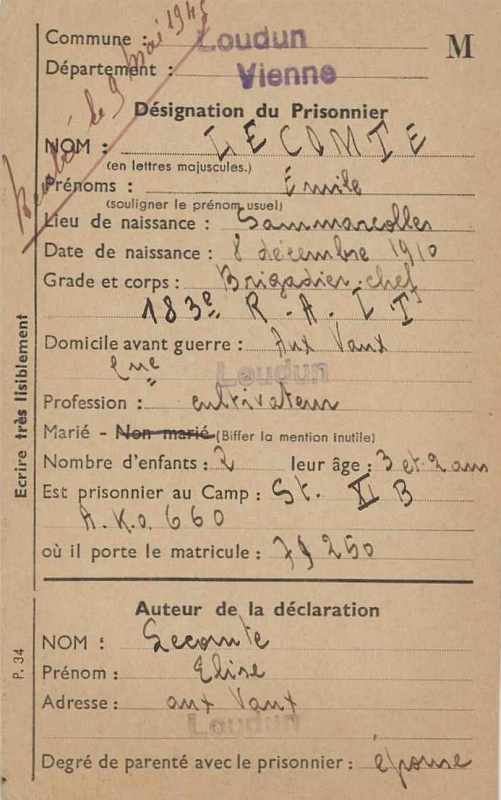 le 9 mai 1945
Commune : Loudun
M
Département : Vienne
Désignation du Prisonnier
NOM : LECOMTE
(en lettres majuscules.)
Prénoms : Émile
(souligner le prénom usuel)
Lieu de naissance : Sammarcolles
Date de naissance : 8 décembre 1910
Grade et corps : Brigadier-chef
183e R. A. L T
Domicile avant guerre : Aux Vaux
Cne Loudun
Profession : cultivateur
Marié - Non marié (Biffer la mention inutile)
Nombre d'enfants : 2 leur âge : 3 et 2 ans
Est prisonnier au Camp : St. XI B
A.K.O. 660
où il porte le matricule : 250
Ecrire très lisiblement
Auteur de la déclaration
NOM : Lecomte
Prénom : Elise
Adresse : aux Vaux
Loudun
Degré de parenté avec le prisonnier : épouse
P. 34